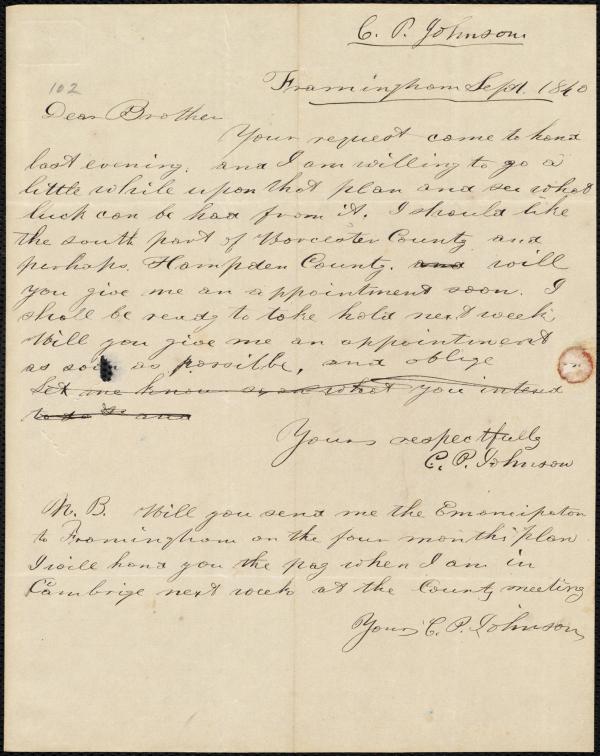 C. P. Johnson
102
Framingham Sept. 1840
Dear Brother
Your request come to hand
last evening, and I am willing to go a
little while upon that plan and see what
luck can be had from it. I should like
the south part of Worcester County and
perhaps Hampden County. and will
you give me an appointment soon. I
shall be ready to take hold next week,
Will you give me an appointment
as soon as possilbe, and oblige
Let me know soon what you intend
to do and
Yours respectfully
C. P. Johnson
N. B. Will you send me the Emancipaton
to Framingham on the four months plan
I will hand you the pay when I am in
Cambrige next week at the County meeting
Yours C. P. Johnson